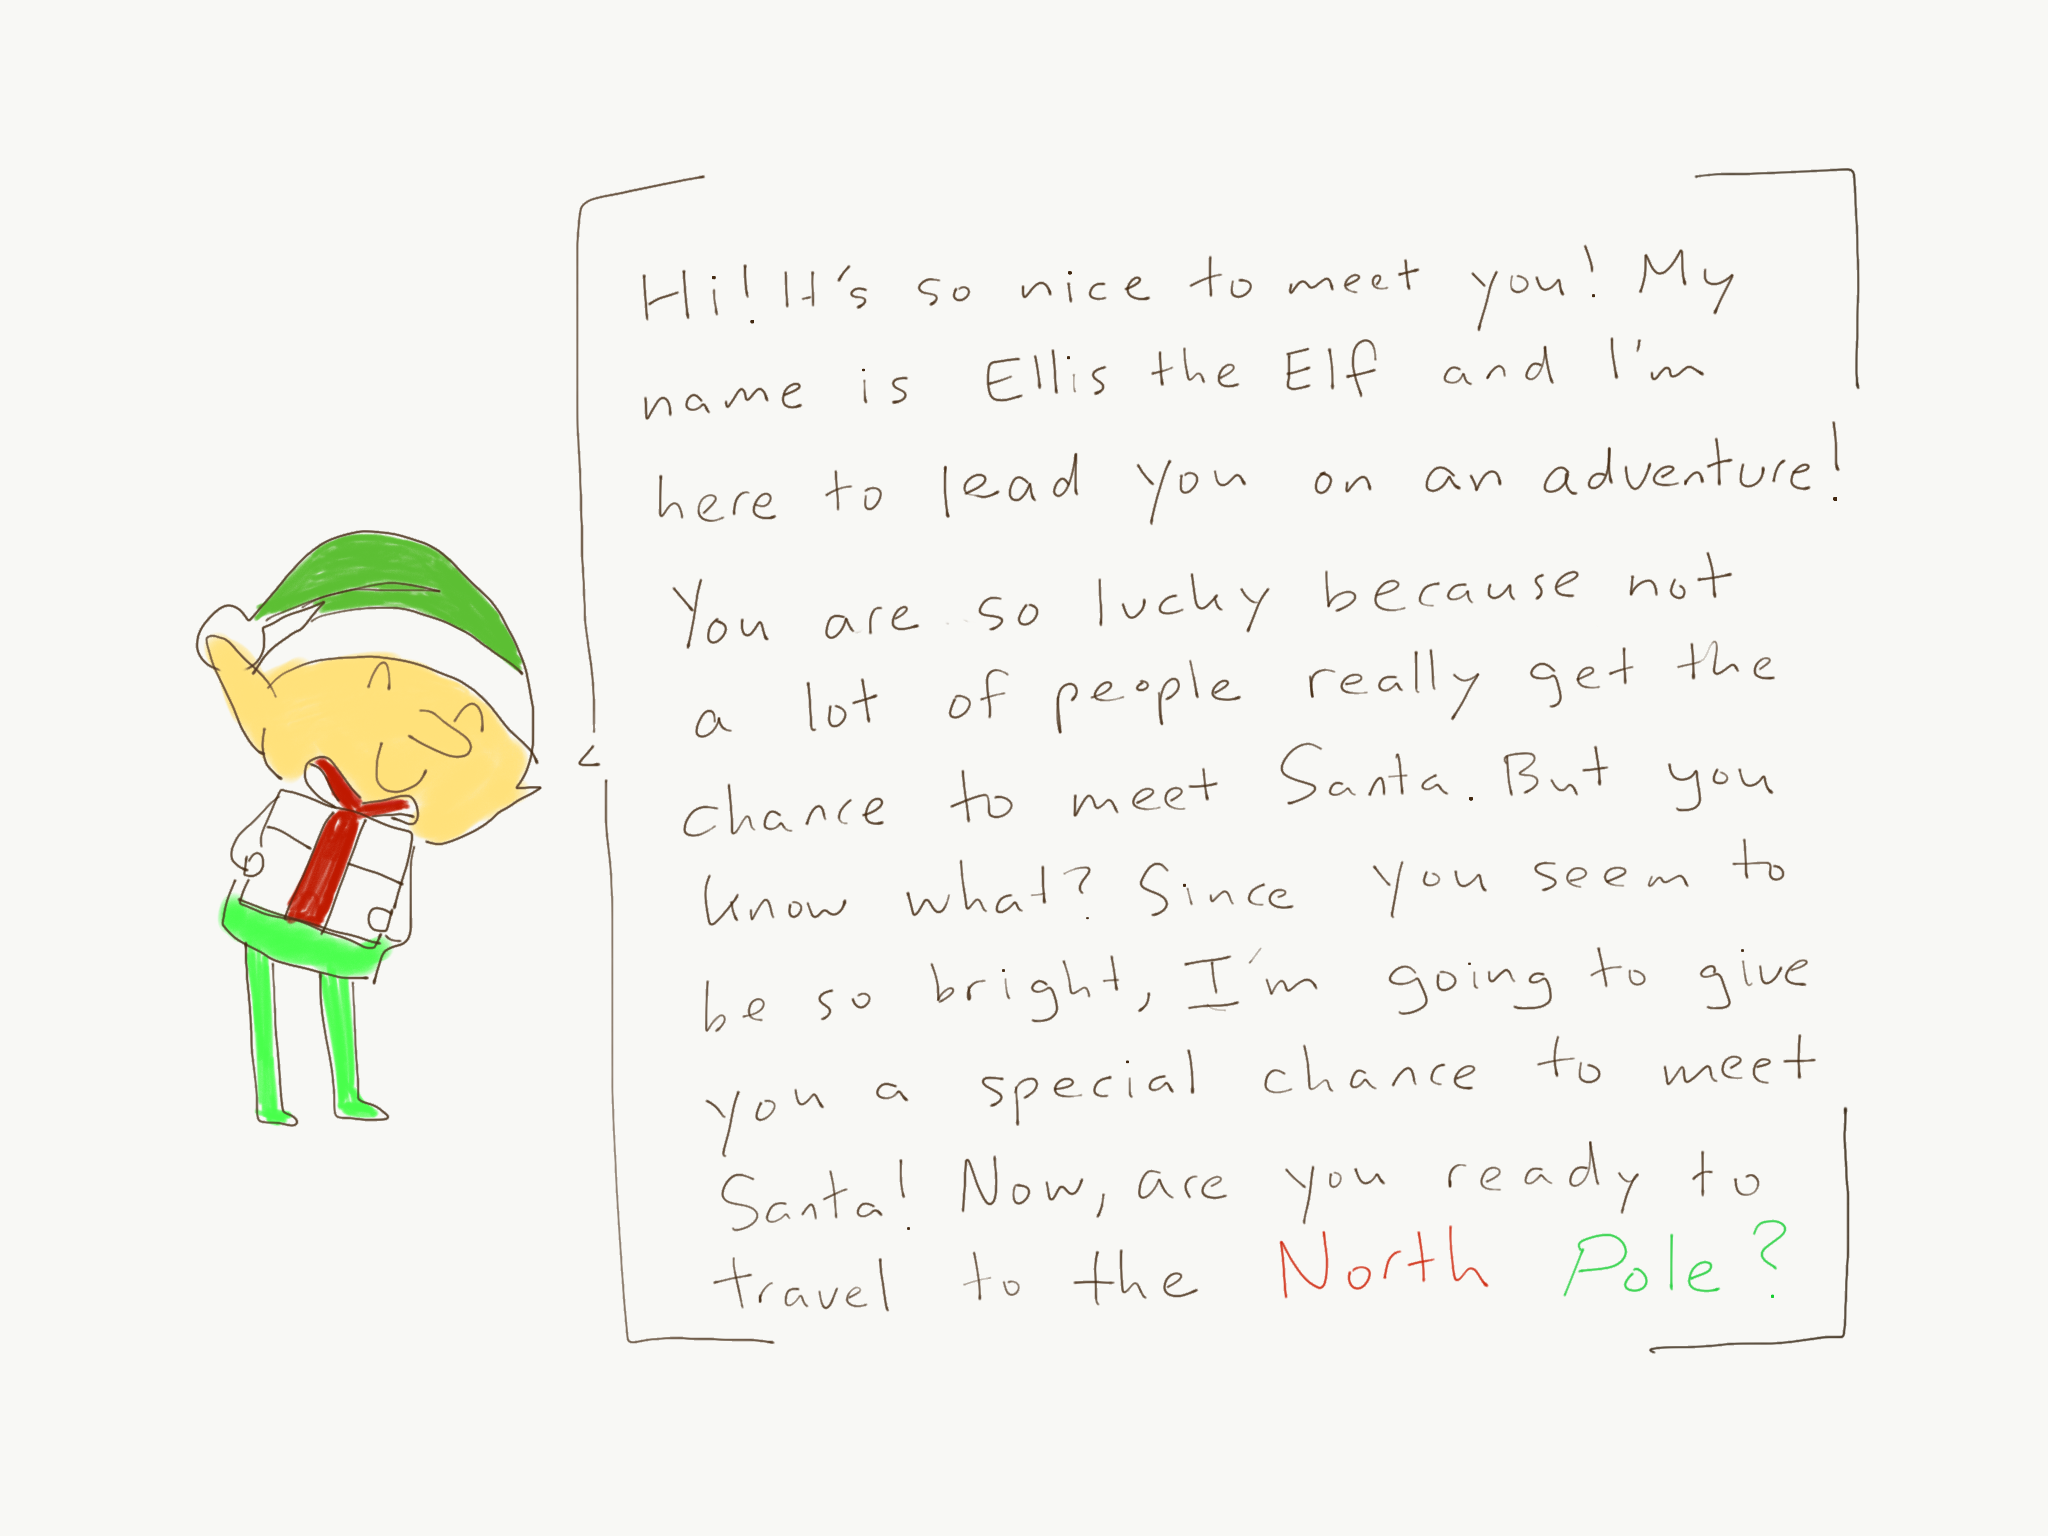 Hi! It's so nice to meet you! My
name is Ellis the Elf and I'm
here to lead you on an adventure!
You are so lucky because not
a lot of people really get the
chance to meet Santa. But you
know what? Since you seem to
be so bright, I'm going to give
you a special chance to meet
Santa! Now, are you ready to
travel to the North Pole?